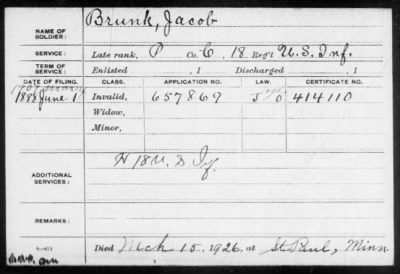 NAME OF SOLDIER: Brunk, Jacob
SERVICE: Late rank, P Co. C, 18 Reg't U.S. Inf.
TERM OF SERVICE: Enlisted , 1 Discharged , 1
DATE OF FILING. CLASS. APPLICATION NO. LAW. CERTIFICATE NO.
1888 June 11 Invalid, 657869 J O 414110
Widow,
Minor,
ADDITIONAL SERVICES: H 18 U.S. Inf.
REMARKS:
Died Mch 15, 1926, at St Paul, Minn.